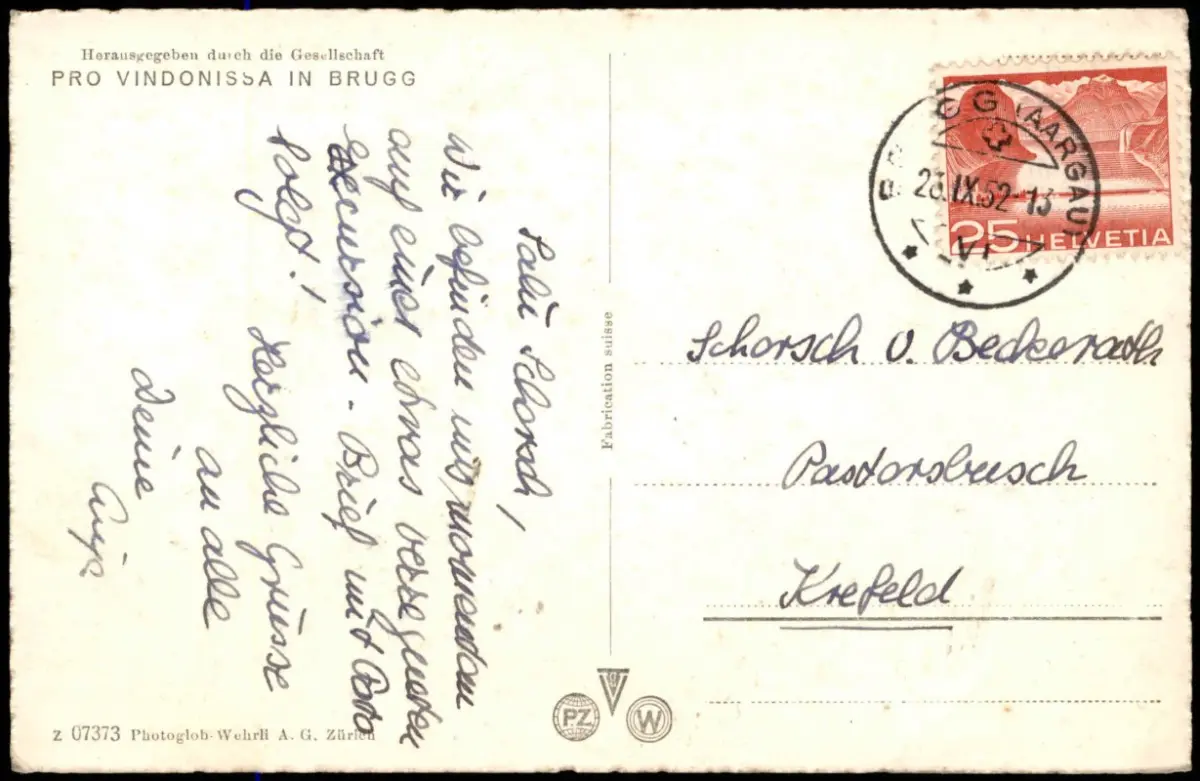 Herausgegeben durch die Gesellschaft
PRO VINDONISSA IN BRUGG
Salü Schorsch,
Wir befinden uns momentan
auf einer etwas verregneten
Excursion - Brief mit Foto
folgt! Herzliche Grüsse
an alle
Deine
Fabrication suisse
GG (AARGAU)
23.IX.52-13
25 HELVETIA
Schorsch v. Beckerath
Pastorsbusch
Krefeld
PZ
W
Z 07373 Photoglob-Wehrli A. G. Zürich